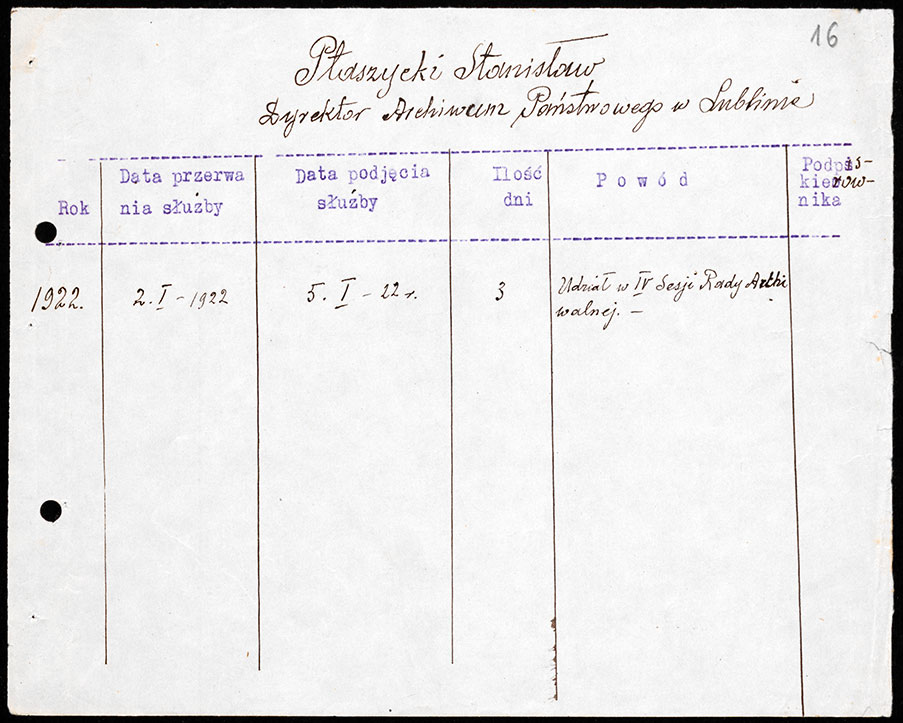 16
Ptaszycki Stanisław
Dyrektor Archiwum Państwowego w Lublinie
Rok
Data przerwa
nia służby
Data podjęcia
służby
Ilość
dni
Powód
Podpis-
kierow-
nika
1922.
2. I - 1922
5. I - 22 r.
3
Udział w IV Sesji Rady Archi
walnej. -